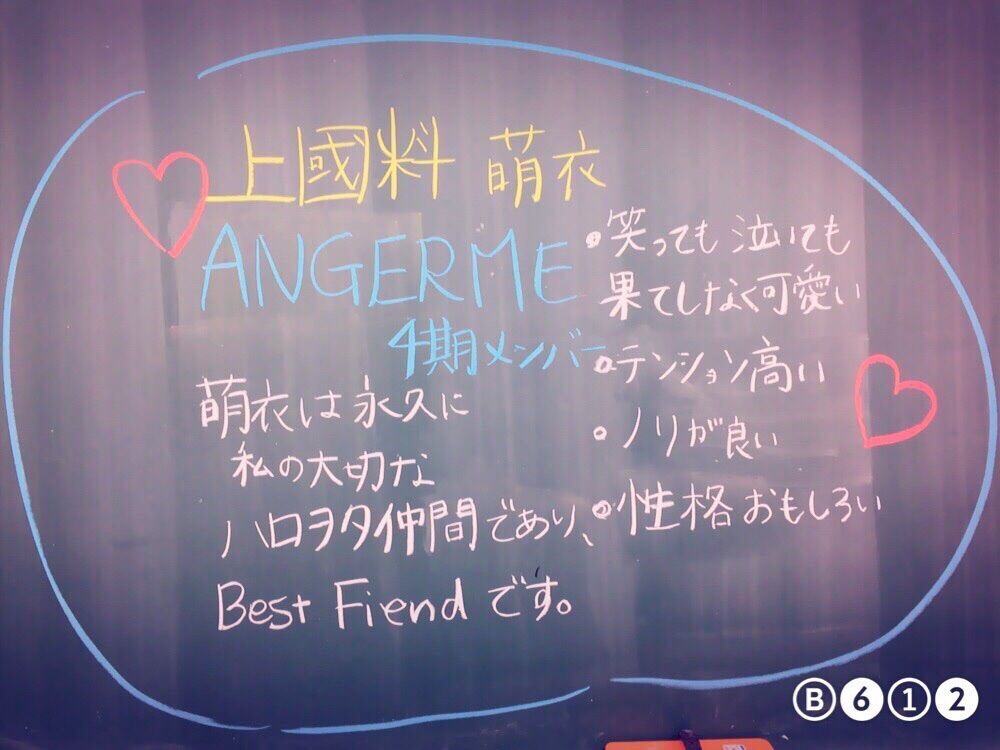 上國料 萌衣
ANGERME
4期メンバー
萌衣は永久に
私の大切な
ハロヲタ仲間であり、
Best Fiendです。
・笑っても泣いても
果てしなく可愛い
・テンション高い
・ノリが良い
・性格おもしろい
B612